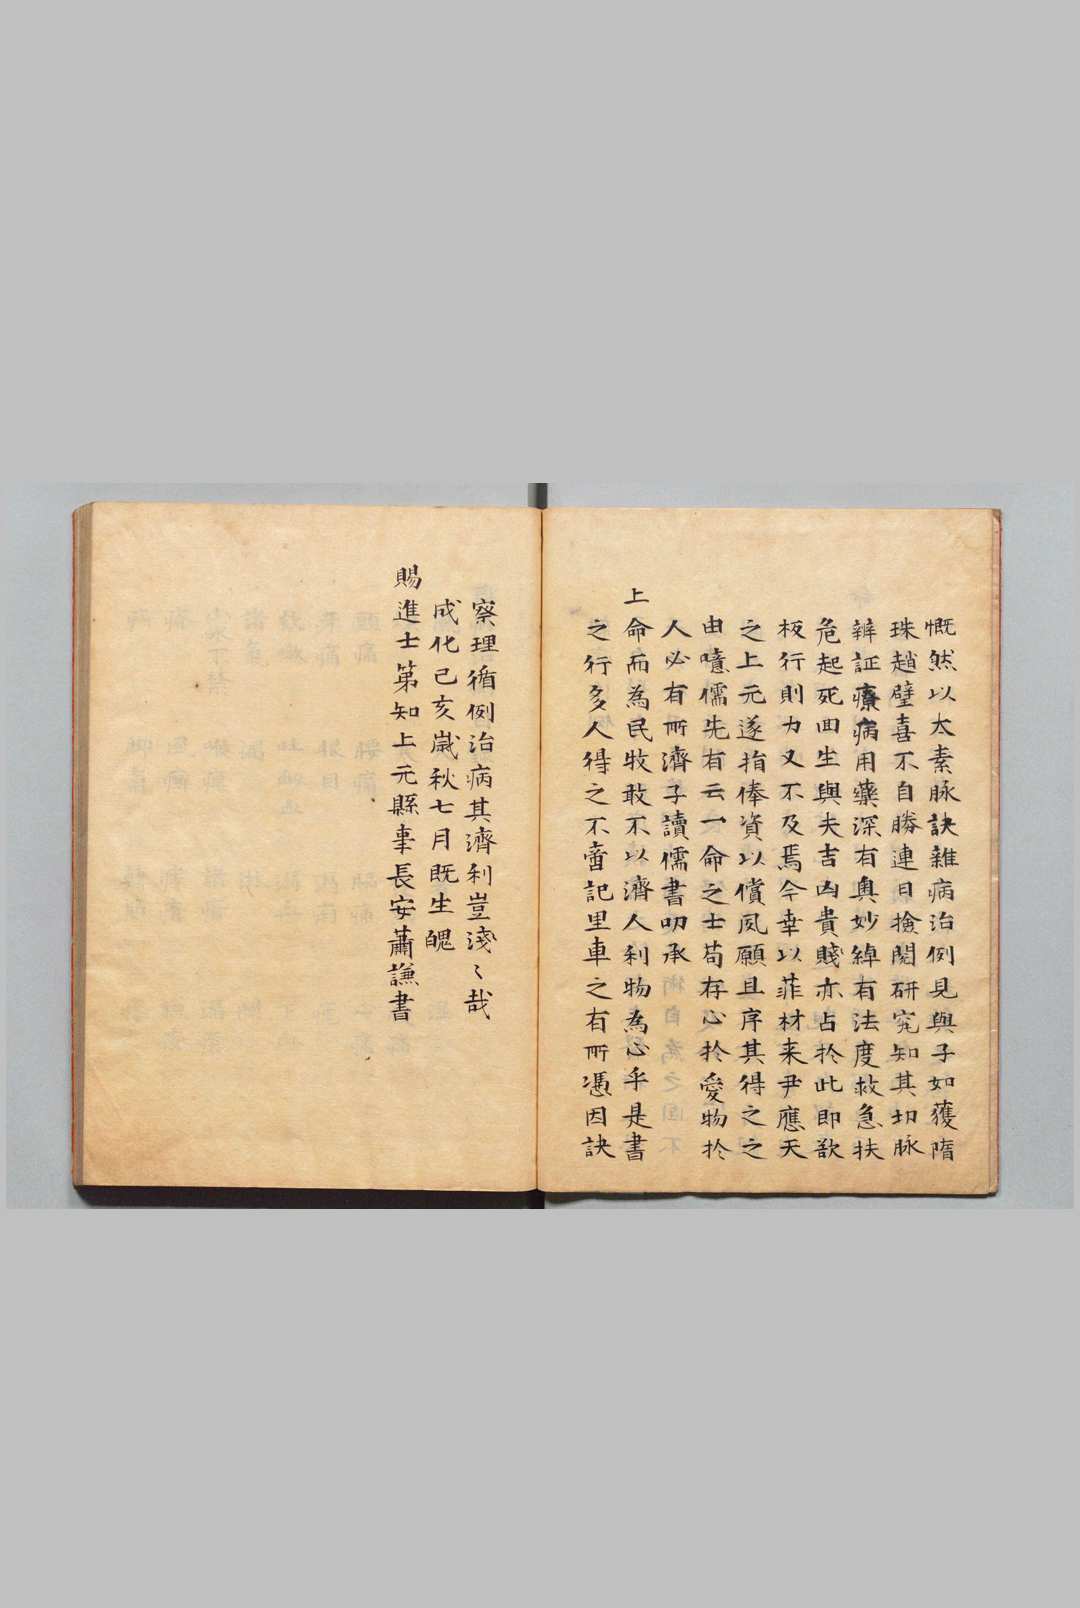 慨然以太素脉訣雜病治例見與予如獲隋
珠趙璧喜不自勝連日撿閱研究知其切脉
辨証療病用藥深有奥妙綽有法度救急扶
危起死回生與夫吉凶貴賤亦占於此即欲
板行則力又不及焉今幸以菲材来尹應天
之上元遂指俸資以償夙願且序其得之之
由噫儒先有云一命之士苟存心於愛物於
人必有所濟予讀儒書叨承
上命而為民牧敢不以濟人利物為心乎是書
之行多人得之不啻記里車之有所憑因訣
察理循例治病其濟利豈淺〻哉
成化己亥歲秋七月既生魄
賜進士第知上元縣事長安蕭謙書